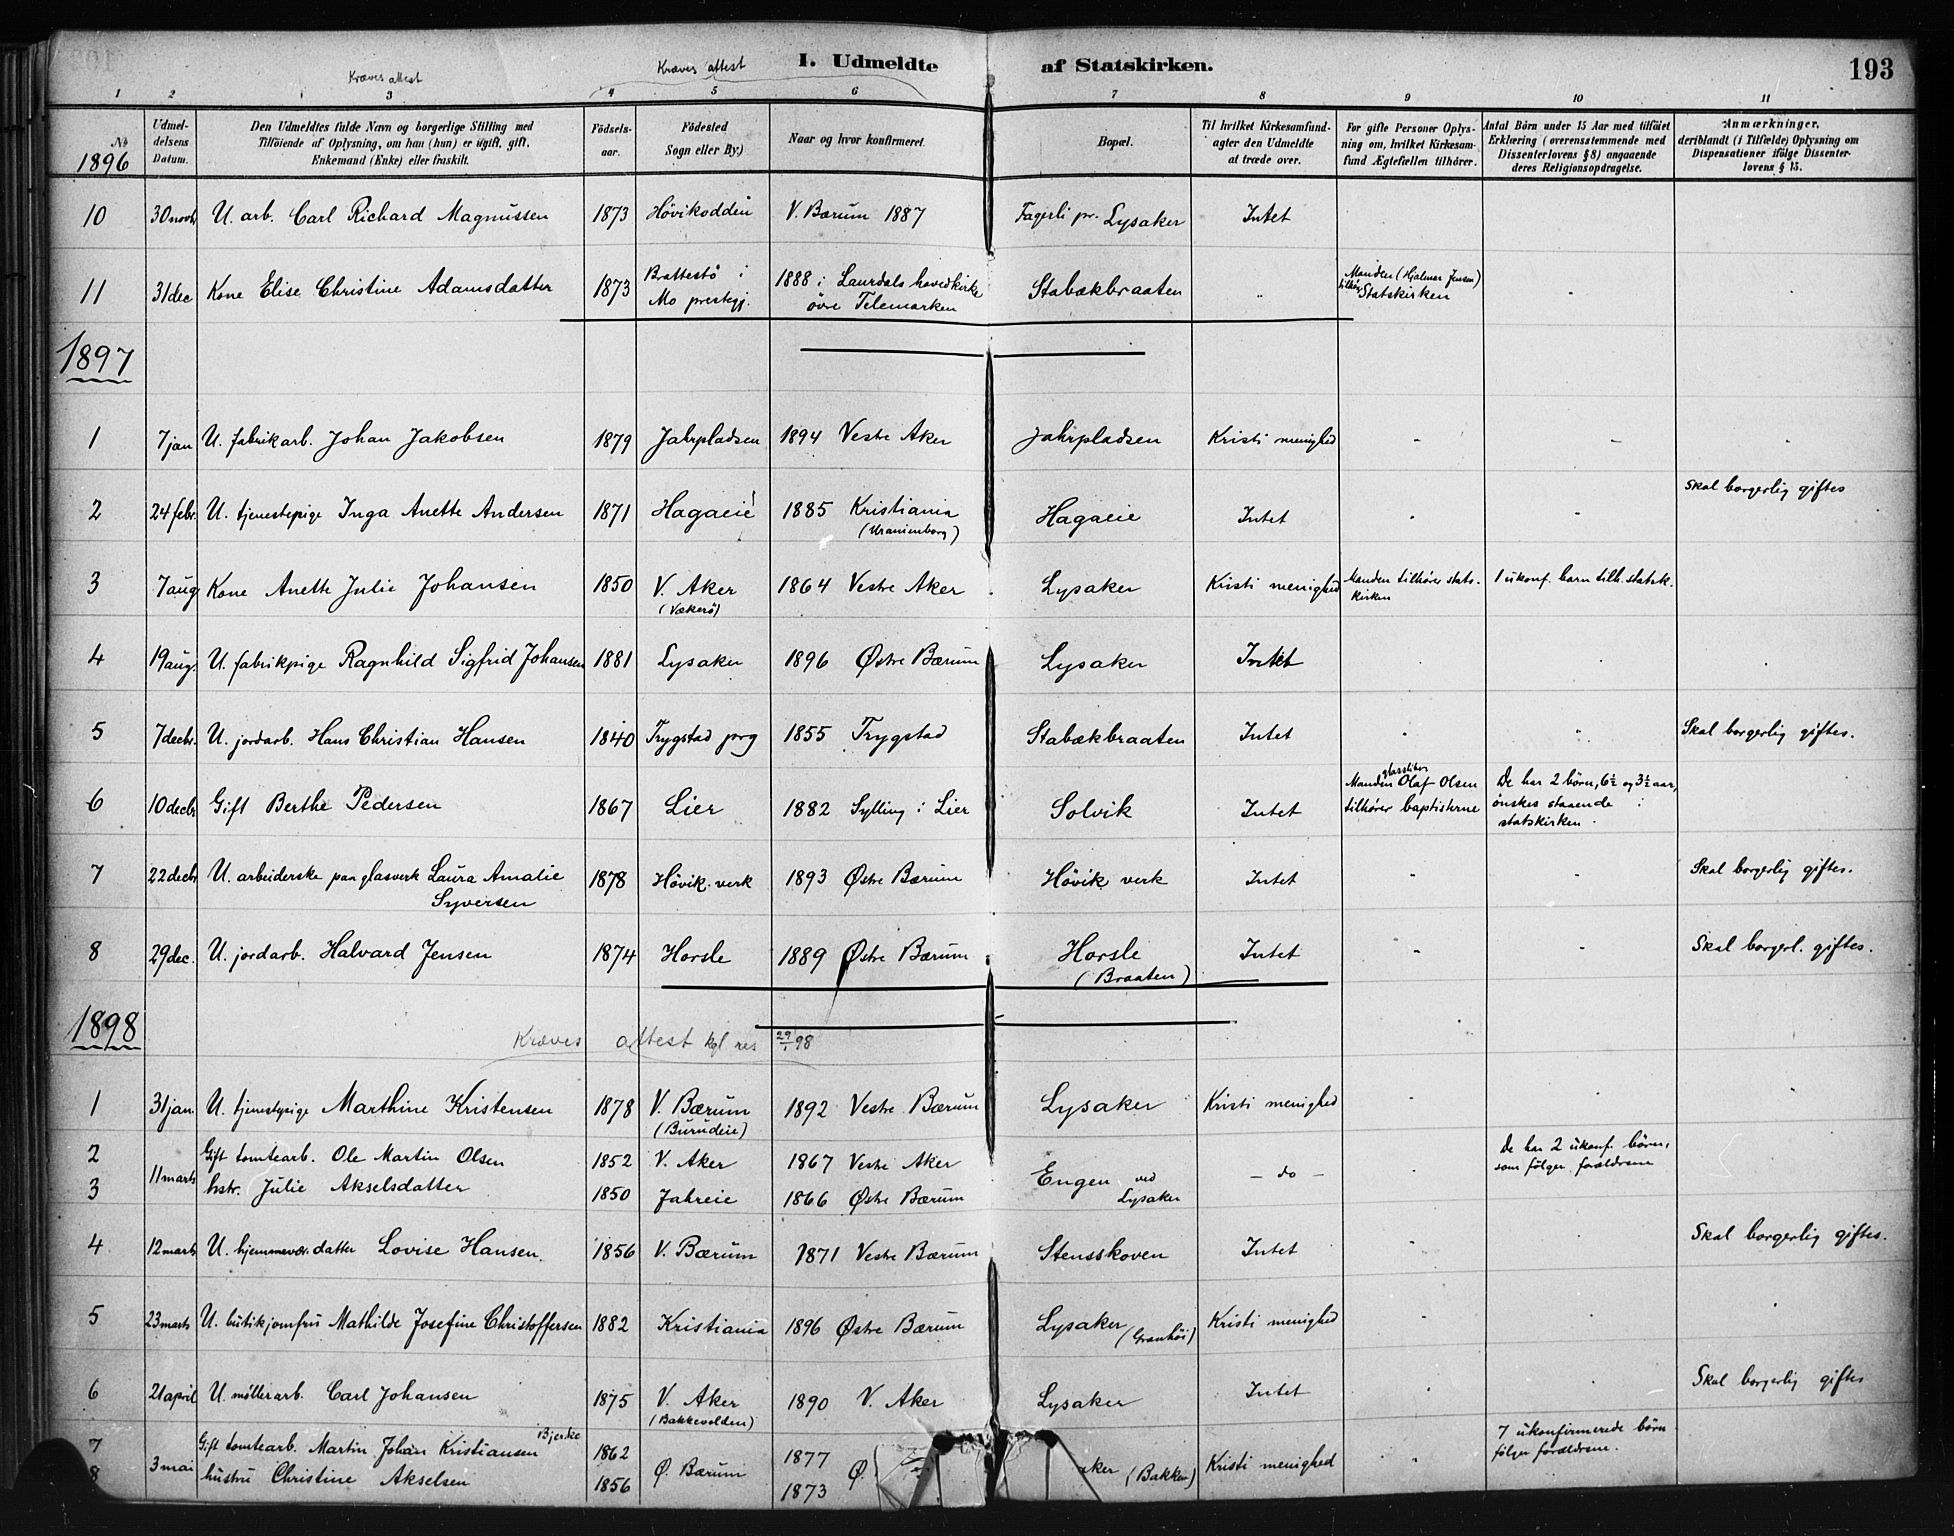 Kræves attest
Kræves attest
I. Udmeldte af Statskirken.
193
1 2 3 4 5 6 7 8 9 10 11
№
1896
Udmel-
delsens
Datum.
Den Udmeldtes fulde Navn og borgerlige Stilling med
Tilföiende af Oplysning, om han (hun) er ugift, gift,
Enkemand (Enke) eller fraskilt.
Födsels-
aar.
Födested
Sogn eller By.)
Naar og hvor konfirmeret.
Bopæl.
Til hvilket Kirkesamfund-
agter den Udmeldte
at træde over.
For gifte Personer Oplys-
ning om, hvilket Kirkesam-
fund Ægtefællen tilhörer.
Antal Börn under 15 Aar med tilföiet
Erklæring (overensstemmende med
Dissenterlovens § 8) angaaende
deres Religionsopdragelse.
Anmærkninger,
deriblandt (i Tilfælde) Oplysning om
Dispensationer ifölge Dissenter-
lovens § 15.
10 30 novb. U. arb. Carl Richard Magnussen 1873 Hövikodden V. Bærum 1887 Fagerli pr. Lysaker Intet
11 31 dec Kone Elise Christine Adamsdatter 1873 Brattestö i
Mo prestegj. 1888 i Laurdals hovedkirke
övre Telemarken Stabækbraaten „ Manden (Hjalmar Jensen)
tilhör Statskirken
1897
1 7 jan U. fabrikarb. Johan Jakobsen 1879 Jahrpladsen 1894 Vestre Aker Jahrpladsen Kristi menighed - - -
2 24 febr. U. tjenestepige Inga Anette Andersen 1871 Hagaeie 1885 Kristiania
(Uranienborg) Hagaeie Intet Skal borgerlig giftes
3 7 aug Kone Anette Julie Johansen 1850 V. Aker
(Vækerö) 1864 Vestre Aker Lysaker Kristi menighed Manden tilhörer stats-
kirken 1 ukonf. barn tilh. statsk.
4 19 aug. U. fabrikpige Ragnhild Sigfrid Johansen 1881 Lysaker 1896 Østre Bærum Lysaker Intet
5 7 decbr. U. jordarb. Hans Christian Hansen 1840 Trygstad prg 1855 Trygstad Stabækbraaten Intet Skal borgerlig giftes.
6 10 decbr Gift Berthe Pedersen 1867 Lier 1882 Sylling i Lier Solvik Intet
Manden Olaf Olsen
tilhörer baptisterne
De har 2 börn, 6½ og 3½ aar,
önskes staaende i
statskirken.
7 22 decbr U. arbeiderske paa glasverk Laura Amalie
Syversen 1878 Hövik verk 1893 Østre Bærum Hövik verk Intet Skal borgerlig giftes.
8 29 dec. U. jordarb. Halvard Jensen 1874 Horsle 1889 Østre Bærum Horsle
(Braaten) Intet Skal borgerl. giftes.
1898
Kræves attest kgl res 29/1 98
1 31 jan. U. tjenestepige Marthine Kristensen 1878 V. Bærum
(Burudeie) 1892 Vestre Bærum Lysaker Kristi menighed
2 11 marts Gift tomtearb. Ole Martin Olsen 1852 V. Aker 1867 Vestre Aker Engen ved
Lysaker - do - De har 2 ukonf. börn,
som fölger forældrene
3 hstr. Julie Akselsdatter 1850 Jahreie 1866 Østre Bærum
4 12 marts U. hjemmevær. datter Lovise Hansen 1856 V. Bærum 1871 Vestre Bærum Stensskoven Intet Skal borgerlig giftes.
5 23 marts U. butikjomfru Mathilde Josefine Christoffersen 1882 Kristiania 1896 Østre Bærum Lysaker
(Granhöi) Kristi menighed
6 21 april U. möllerarb. Carl Johansen 1875 V. Aker
(Bakkevolden) 1890 V. Aker Lysaker Intet Skal borgerlig giftes
7 3 mai Gift tomtearb. Martin Johan Kristiansen Bjerke 1862 Ø. Bærum 1877 Ø. aker (Bakken) Kristi menighed 7 ukonfirmerede börn
fölger forældrene.
8 hustru Christine Akselsen 1856 1873